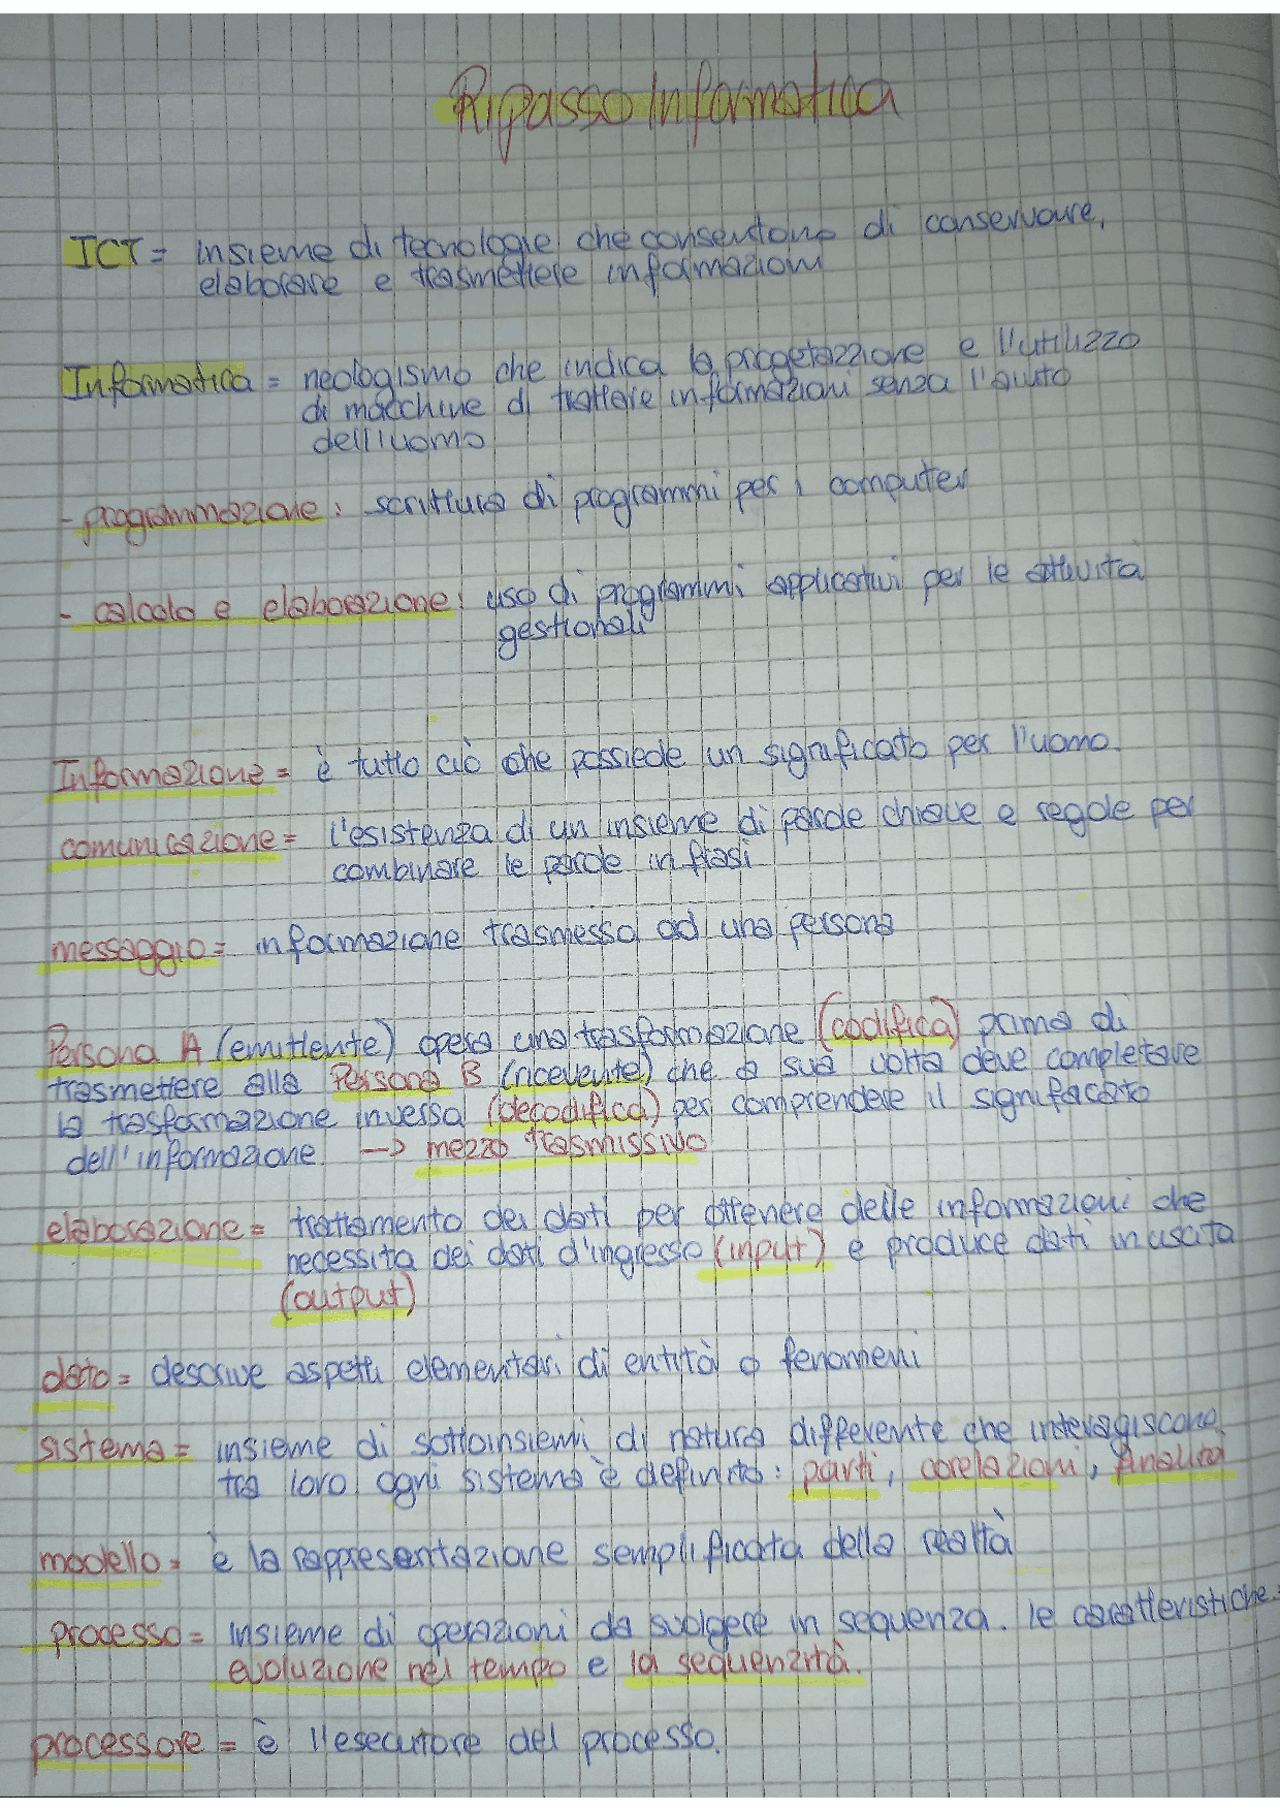 Ripasso Informatica
ICT = insieme di tecnologie che consentono di conservare,
elaborare e trasmettere informazioni
Informatica = neologismo che indica la progetazzione e l'utilizzo
di macchine di trattare informazioni senza l'aiuto
dell'uomo
- programmazione: scrittura di programmi per i computer
- calcolo e elaborazione: uso di programmi applicativi per le attività
gestionali
Informazione = è tutto ciò che possiede un significato per l'uomo.
comunicazione = l'esistenza di un insieme di parole chiave e regole per
combinare le parole in frasi
messaggio = informazione trasmessa ad una persona
Persona A (emittente) opera una trasformazione (codifica) prima di
trasmettere alla Persona B (ricevente) che a sua volta deve completare
la trasformazione inversa (decodifica) per comprendere il significato
dell'informazione. → mezzo trasmissivo
elaborazione = trattamento dei dati per ottenere delle informazioni che
necessita dei dati d'ingresso (input) e produce dati in uscita
(output)
dato = descrive aspetti elementari di entità o fenomeni
sistema = insieme di sottoinsiemi di natura differente che interagiscono
tra loro ogni sistema è definito: parti, corelazioni, finalità
modello = è la rappresentazione semplificata della realtà
processo = insieme di operazioni da svolgere in sequenza. le caratteristiche:
evoluzione nel tempo e la sequenzità.
processore = è l'esecutore del processo.